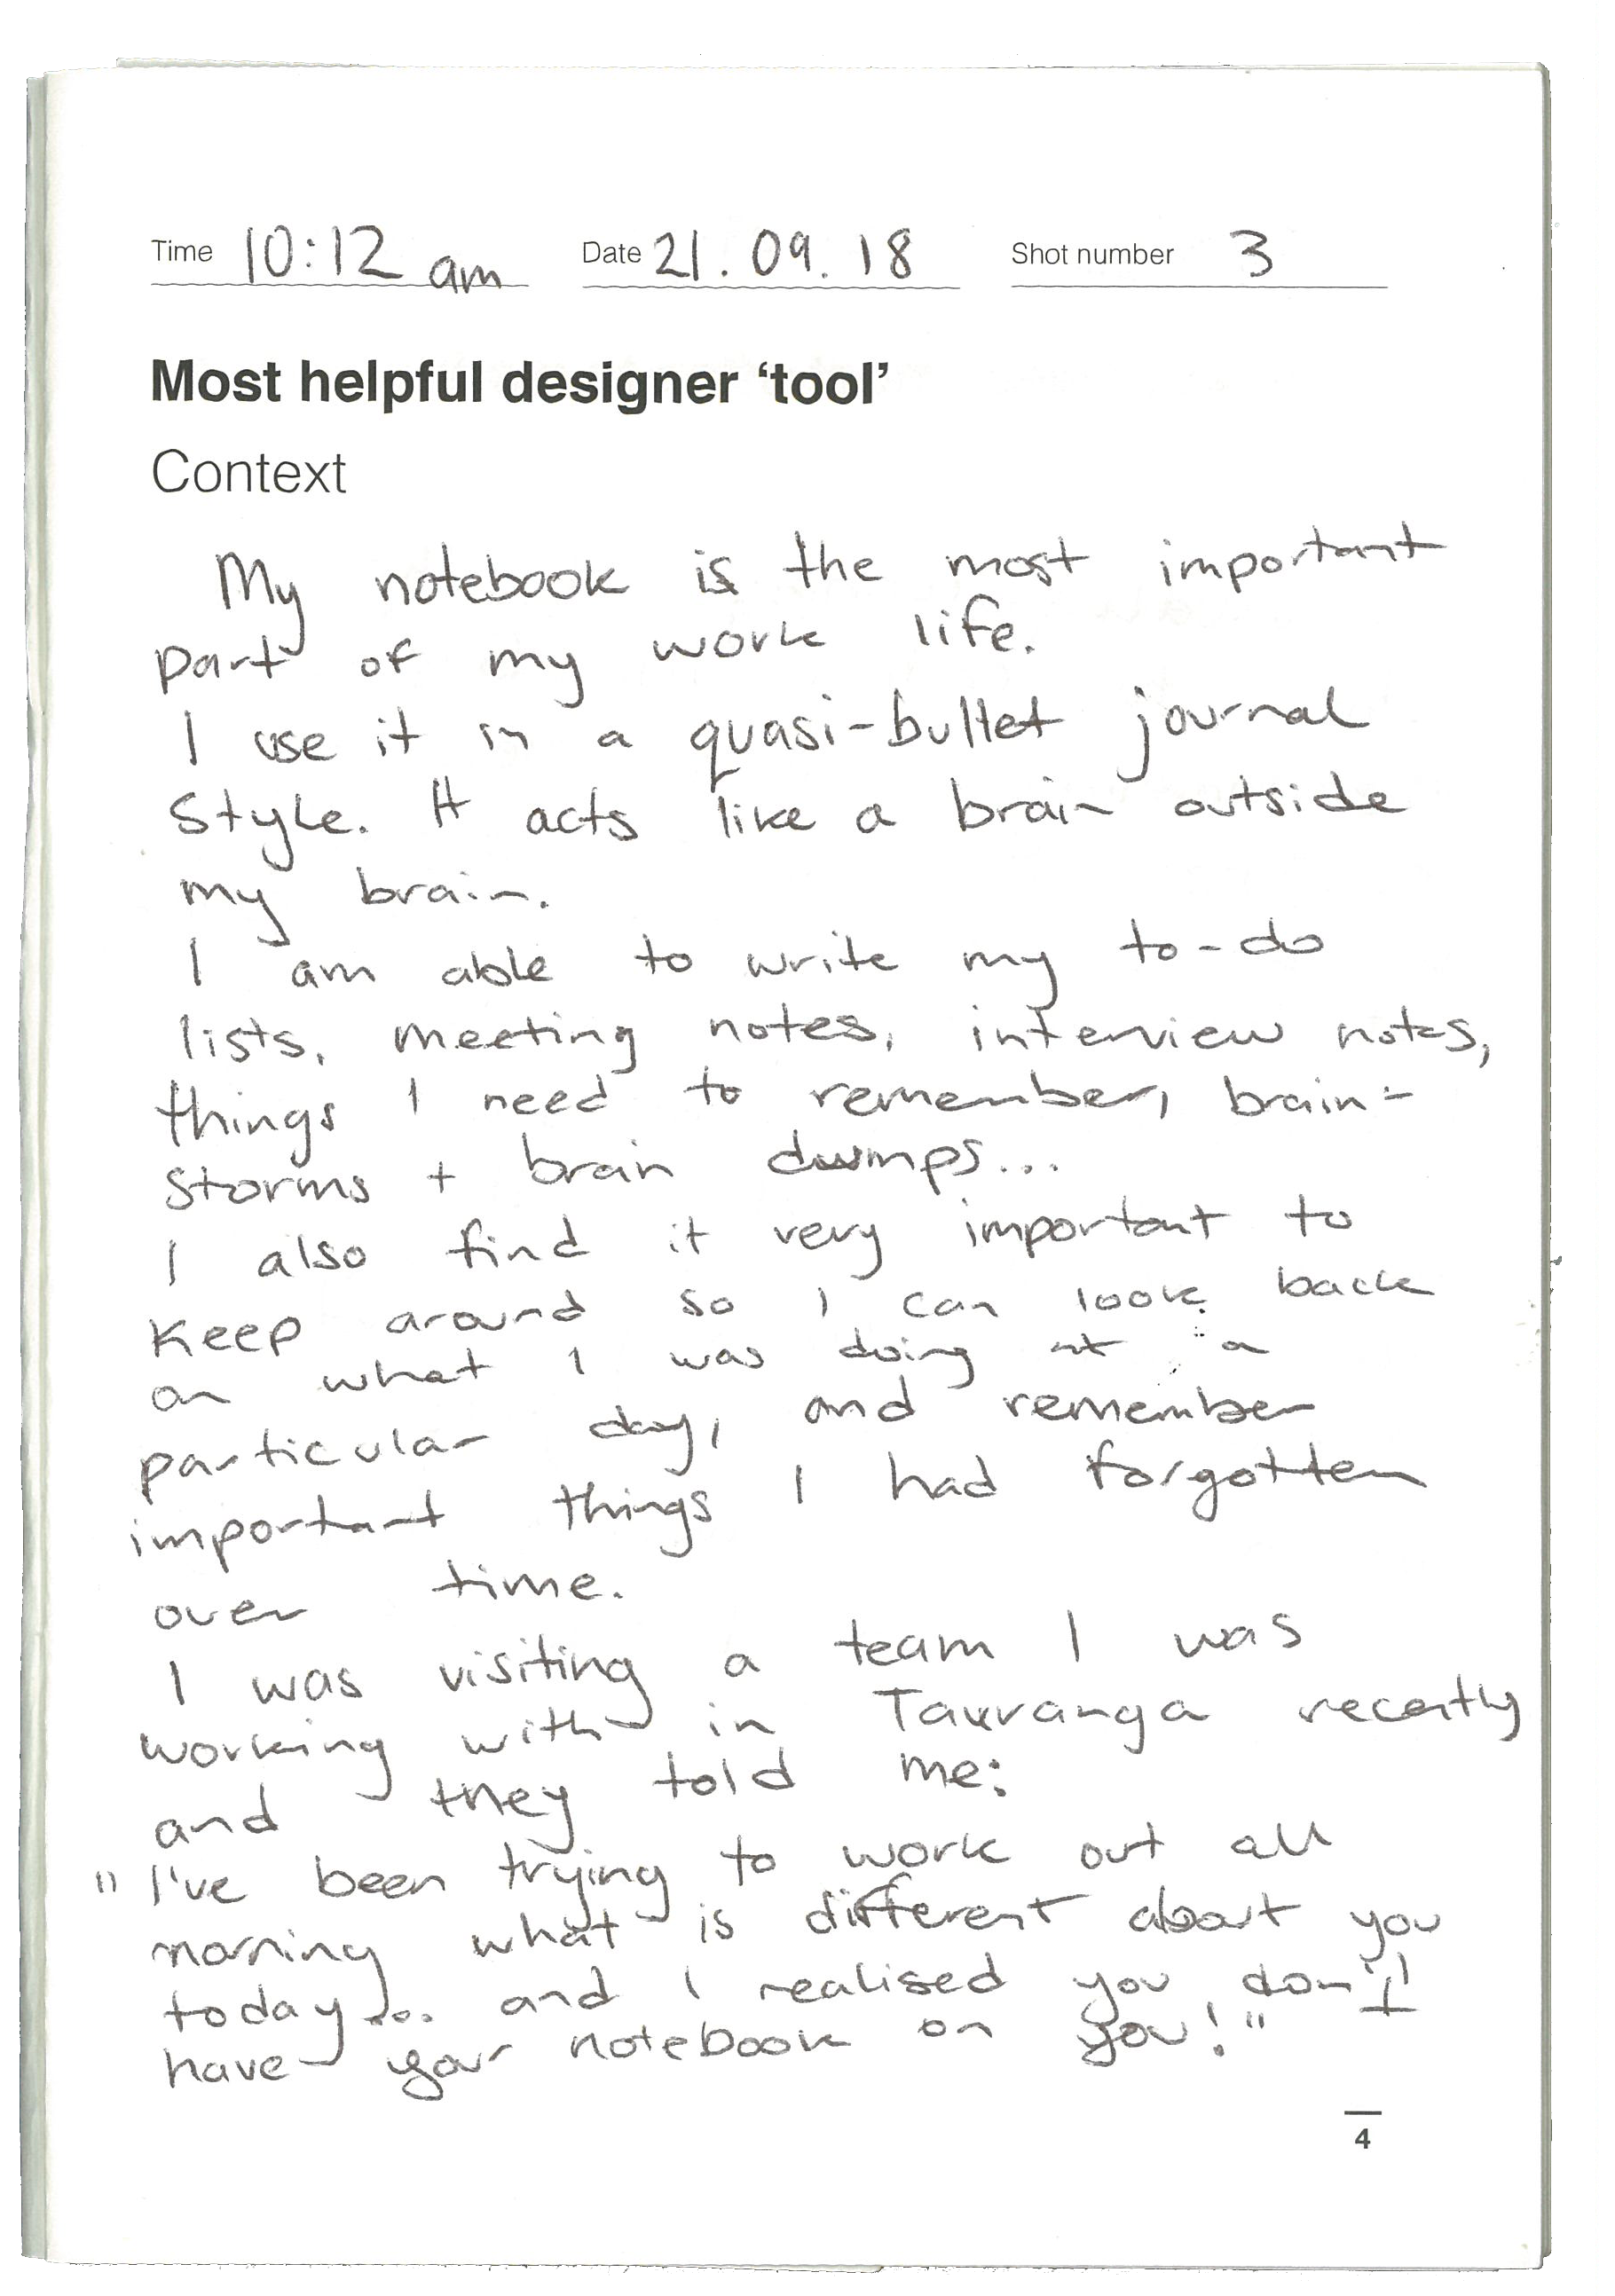 Time 10:12 am Date 21.09.18 Shot number 3
Most helpful designer ‘tool’
Context
My notebook is the most important
part of my work life.
I use it in a quasi-bullet journal
style. It acts like a brain outside
my brain.
I am able to write my to-do
lists, meeting notes, interview notes,
things I need to remember, brain-
storms + brain dumps...
I also find it very important to
keep around so I can look back
on what I was doing at a
particular day, and remember
important things I had forgotten
over time.
I was visiting a team I was
working with in Tauranga recently
and they told me:
"I've been trying to work out all
morning what is different about you
today... and I realised you don't
have your notebook on you!"
4